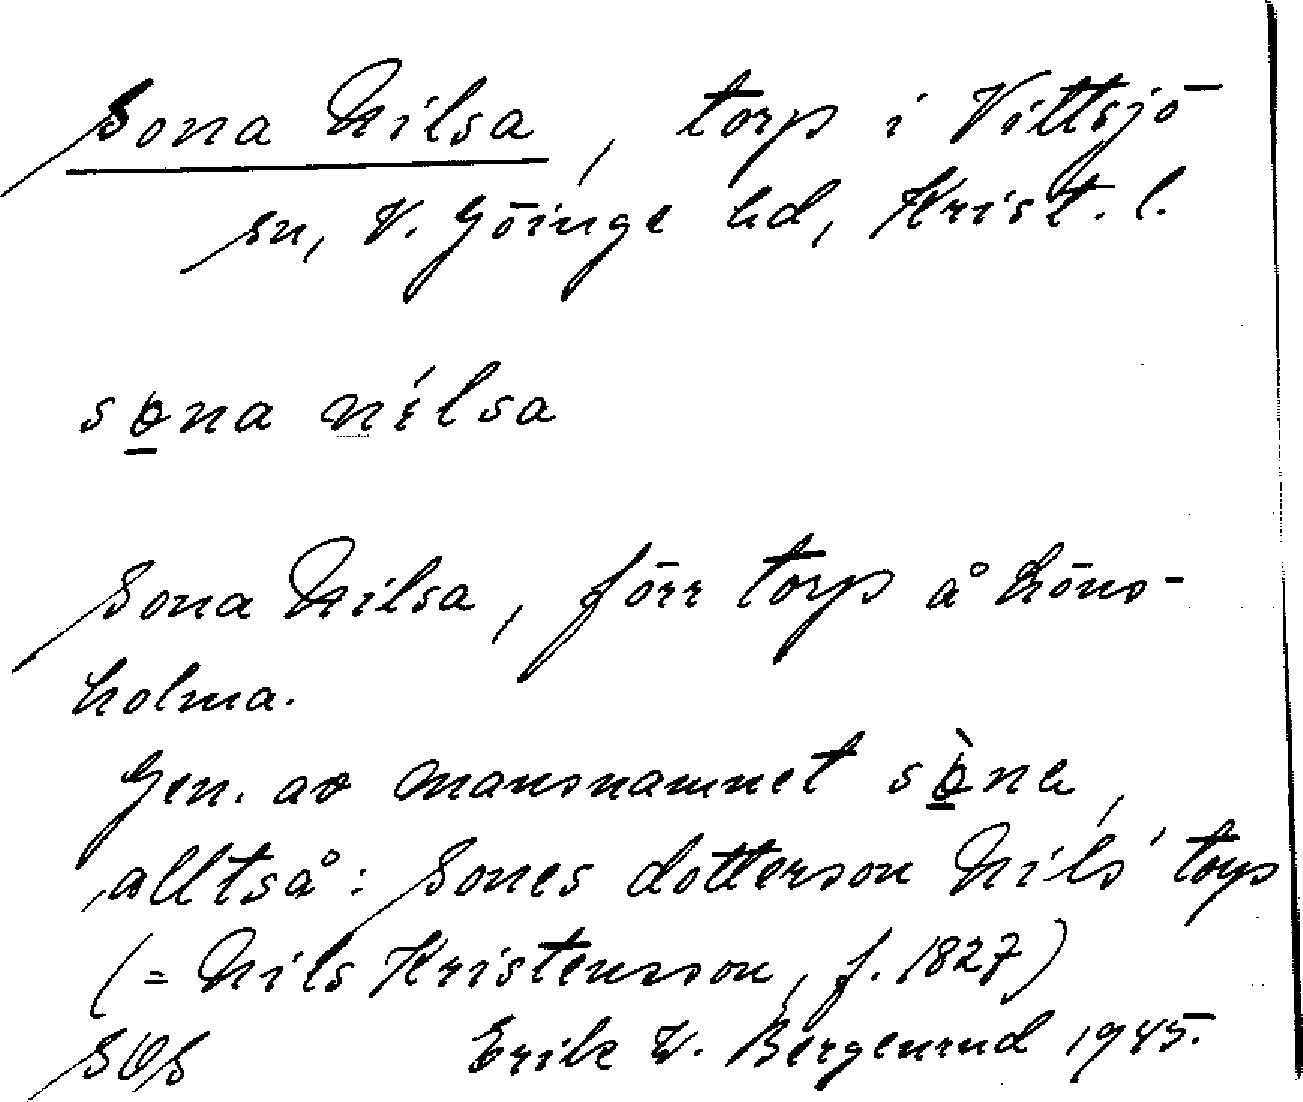 Sona Nilsa, torp i Vittsjö
sn, V. Göinge hd, Krist. l.
sona nílsa
Sona Nilsa, förr torp å Höns-
holma.
Gen. av mansnamnet sòna,
alltså: Sones dotterson Nils' torp
(= Nils Kristensson, f. 1827)
SOS Erik W. Bergenrud 1945.